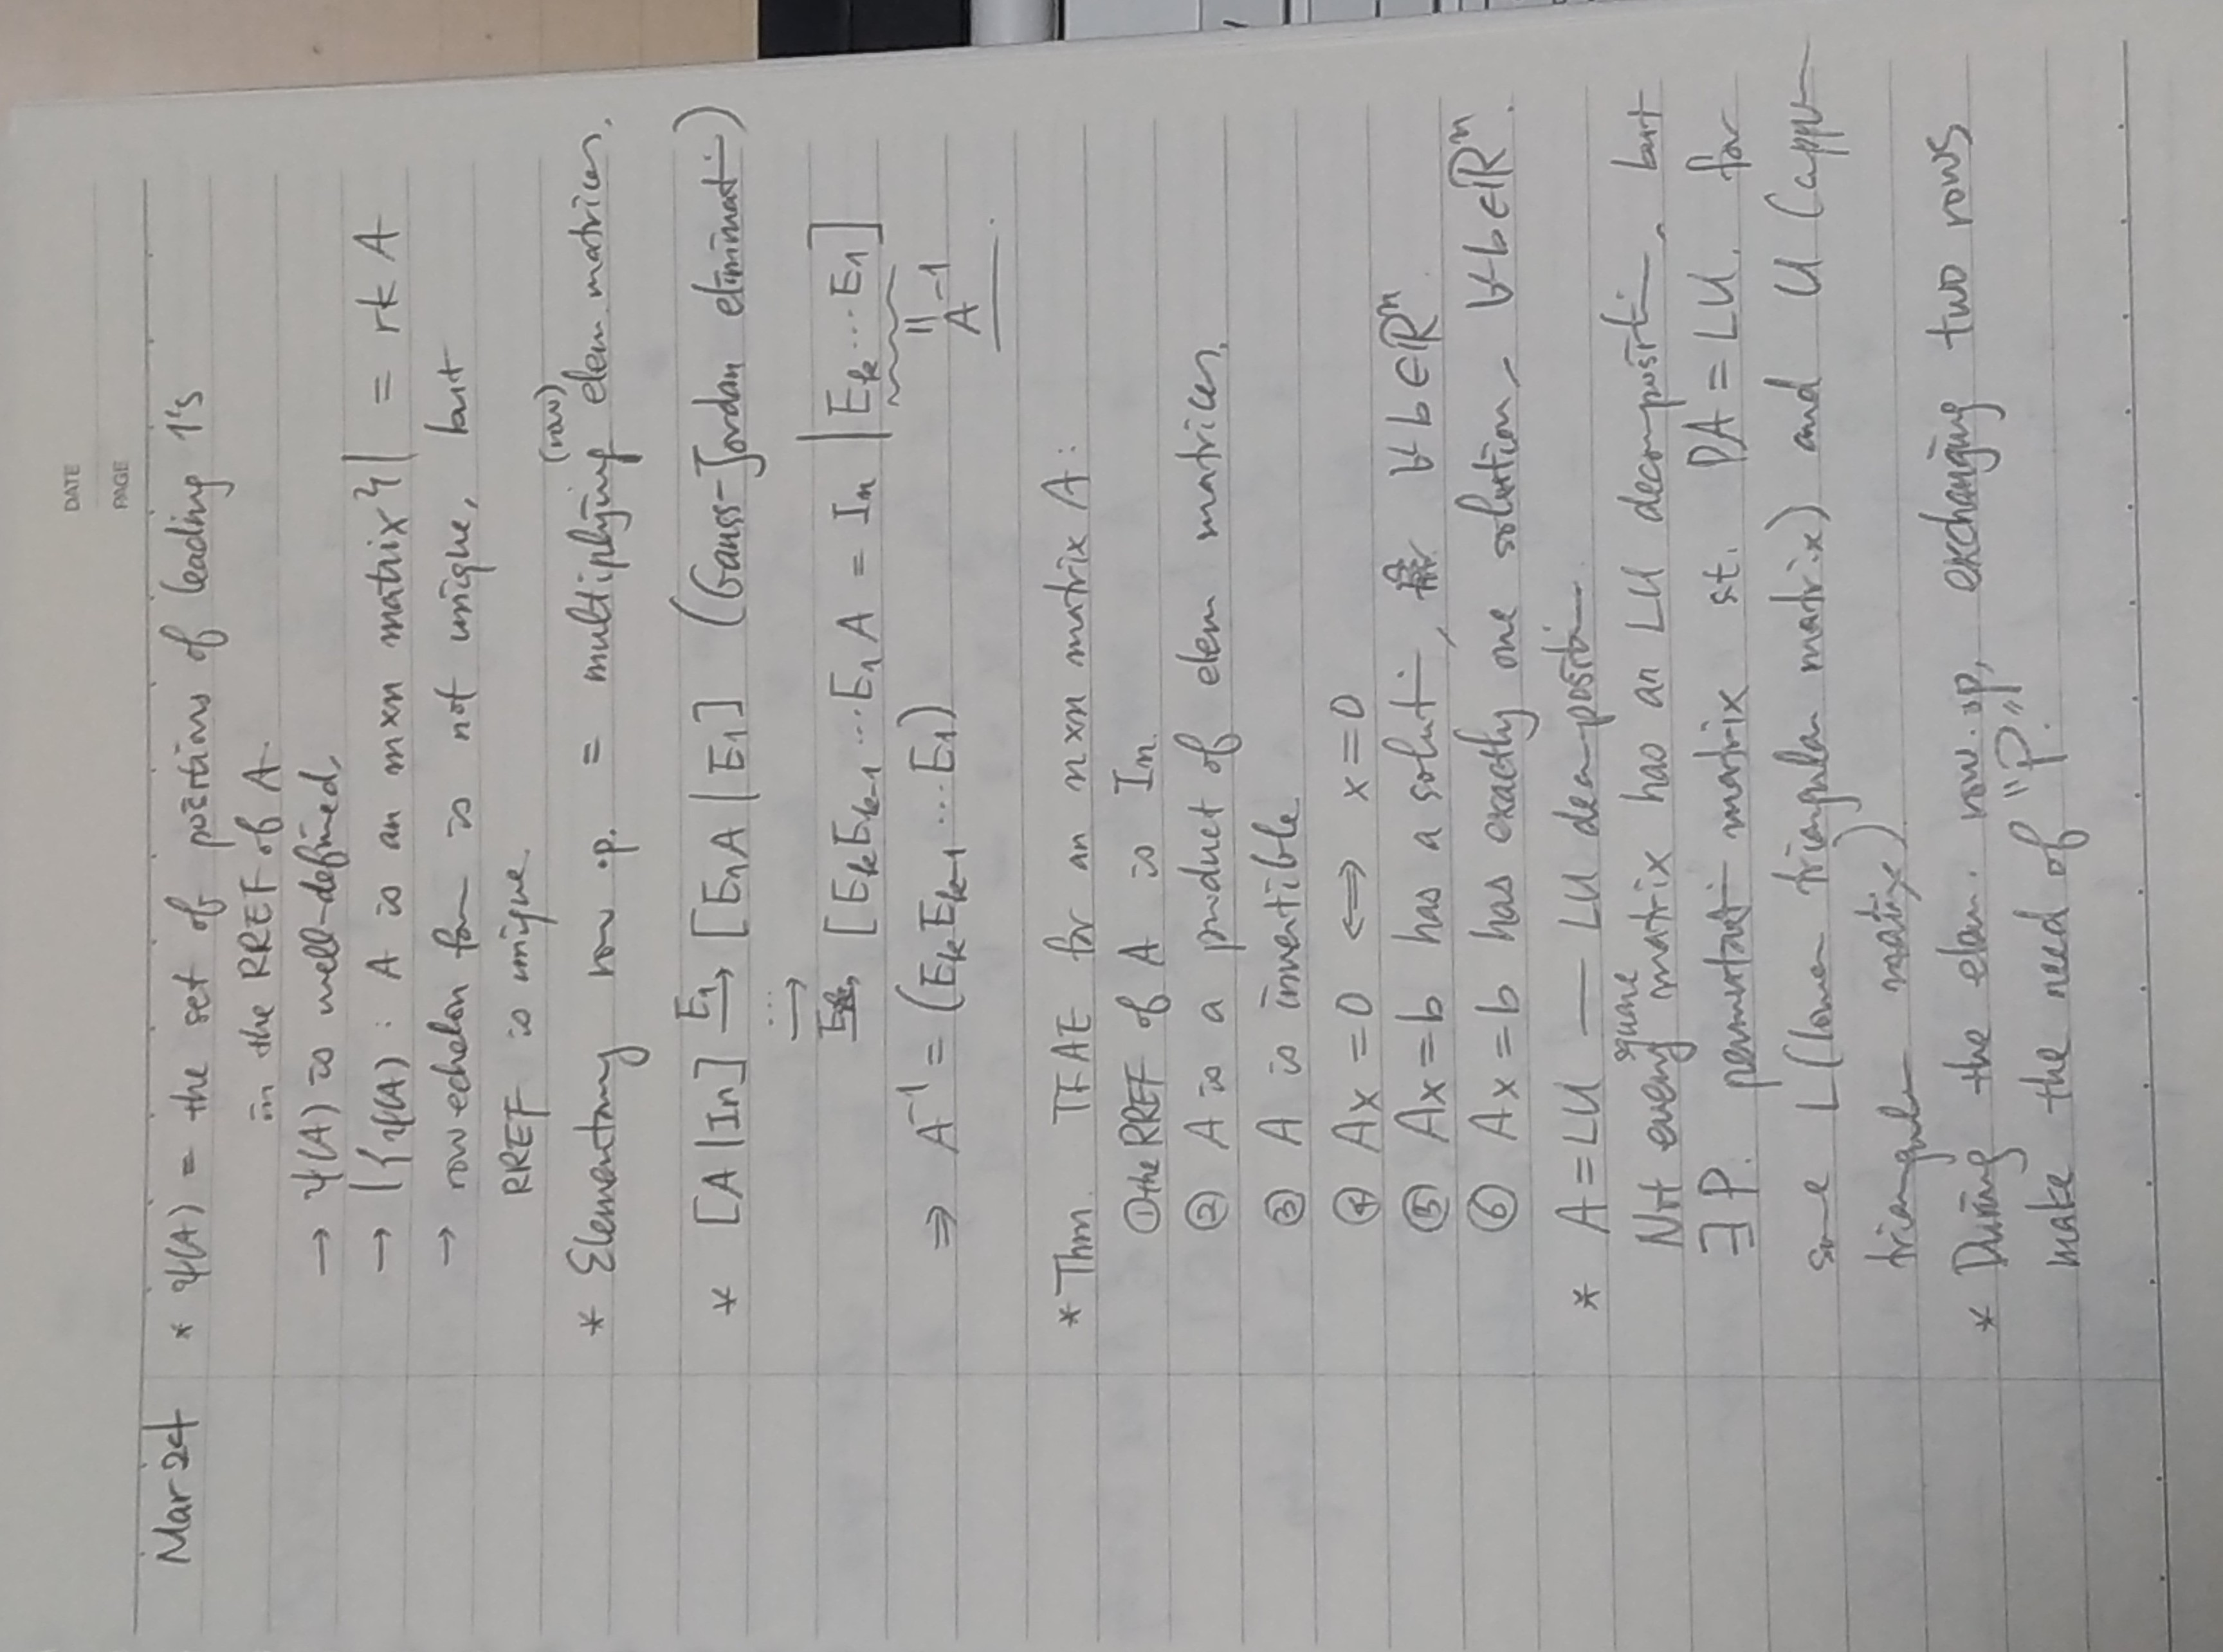 DATE
PAGE
Mar 24 * ψ(A) = the set of positions of leading 1's
in the RREF of A.
→ ψ(A) is well-defined.
→ |{ψ(A) : A is an m×n matrix}| = rk A
→ row echelon form is not unique, but
RREF is unique.
(row)
* Elementary row op. = multiplying elem. matrices.
* [A | In] E1→ [E1A | E1] (Gauss-Jordan elimination)
... →
Ek, [EkEk-1 ... E1 A = In | Ek ... E1]
⇒ A⁻¹ = (Ek Ek-1 ... E1) = A⁻¹
* Thm. TFAE for an n×n matrix A :
① the RREF of A is In.
② A is a product of elem matrices.
③ A is invertible
④ Ax = 0 ⟺ x = 0
⑤ Ax = b has a solution, ∀ b ∈ ℝⁿ
⑥ Ax = b has exactly one solution, ∀ b ∈ ℝⁿ.
* A = LU — LU decomposition
square
Not every matrix has an LU decomposition, but
∃ P. permutation matrix s.t. PA = LU. for
some L (lower triangular matrix) and U (upper
triangular matrix)
* During the elem. row. op, exchanging two rows
make the need of "P."